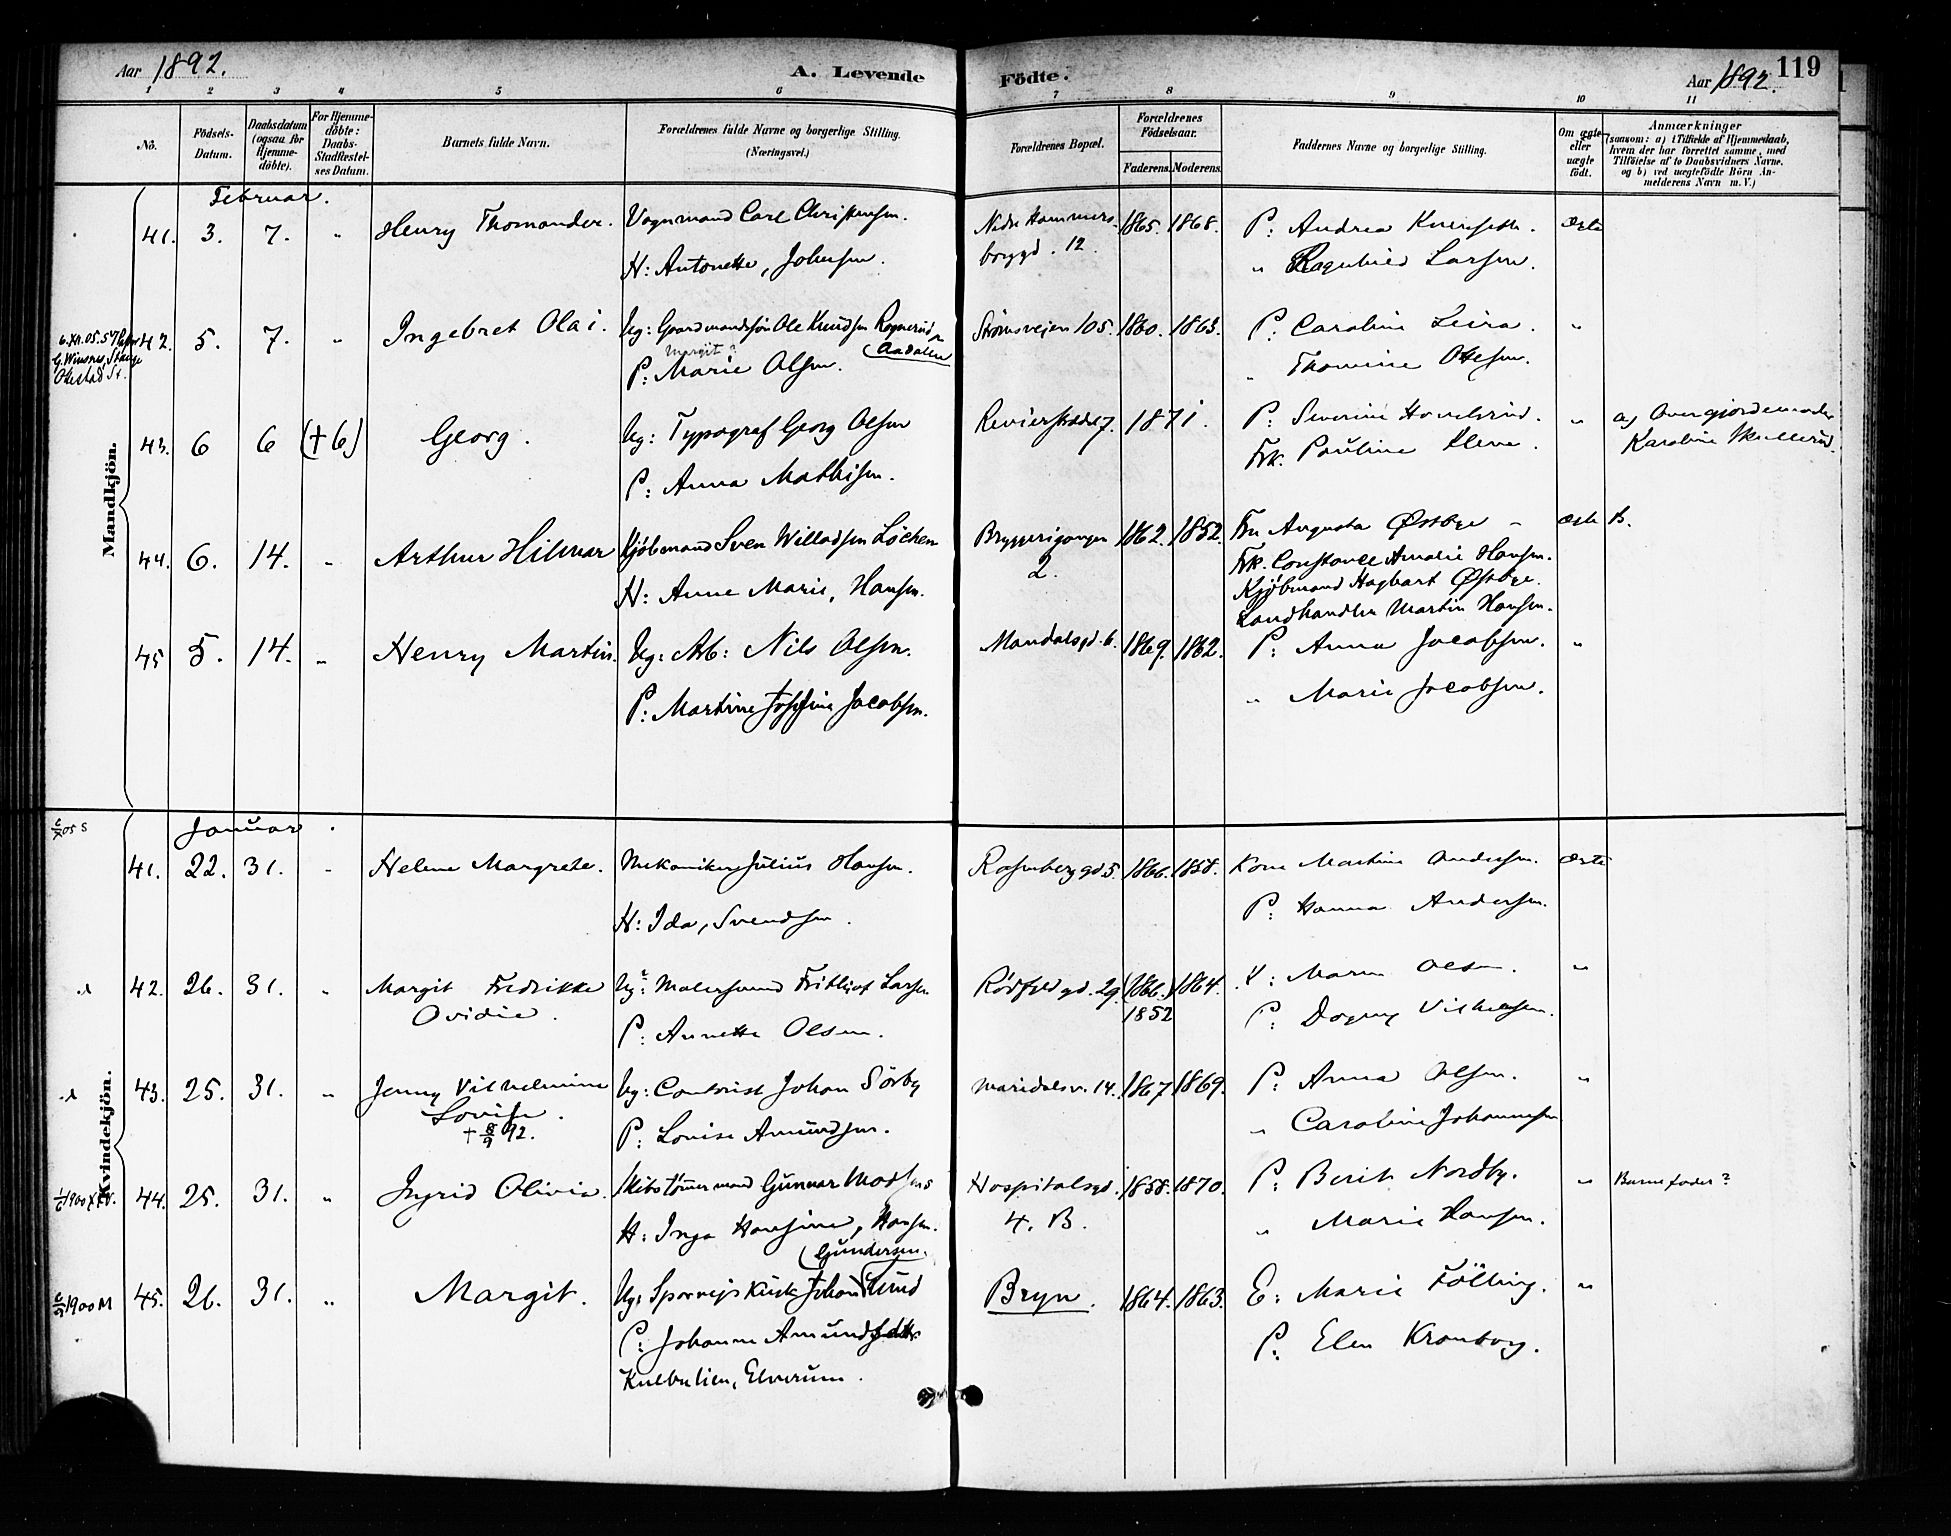 Aar 1892.
A. Levende Födte.
Aar 1892.
119
1 2 3 4 5 6 7 8 9 10 11
No.
Födsels-Datum.
Daabsdatum (ogsaa for Hjemmedöbte).
For Hjemmedöbte: Daabs-Stadfæstelses Datum.
Barnets fulde Navn.
Forældrenes fulde Navne og borgerlige Stilling. (Næringsvei.)
Forældrenes Bopæl.
Forældrenes Födselsaar.
Faderens. Moderens.
Faddernes Navne og borgerlige Stilling.
Om ægte eller uægte födt.
Anmærkninger
(saasom: a) i Tilfælde af Hjemmedaab, hvem der har forrettet samme, med Tilföielse af to Daabsvidners Navne. og b) ved uægtefödte Börn Anmelderens Navn m. V.)
Mandkjön.
Februar.
41. 3. 7. " Henry Thomander. Vognmand Carl Christensen. Nedre Hammers- 1865. 1868. P: Andrea ægte
H: Antonette, Johnsen. borggd. 12. " Ragnhild Larsen.
42. 5. 7. " Ingebret Olai. Ug: Gaardmandssøn Ole Knudsen Rognerud Strømsveien 105. 1860. 1863. P. Caroline Leira. "
Aadalen
Margit?
P: Marie Olsen. " Thomine Olsen.
43. 6 6 (+6) Georg. Ug: Typograf Georg Olsen Revierstrædet 7. 1871. P: Severine " a) Overgjordemoder
P: Anna Mathisen. Frk. Pauline Karoline
44. 6. 14. " Arthur Hilmar Kjøbmand Sven Willadsen Löchen Bryggerigangen 1862. 1852. Fru Augusta Østbye - ægte B.
2. Frk. Constance Amalie Hansen.
H: Anne Marie, Hansen. Kjøbmand Hagbart Østbye.
Landhandler Martin Hansen.
45 5. 14. " Henry Martin. Ug: Arb: Nils Olsen. Mandalsgd. 6. 1869. 1862. P: Anna Jacobsen. "
P: Martine Josefine Jacobsen. " Marie Jacobsen.
Kvindekjön.
Januar.
41. 22. 31. " Helene Margrete. Mekaniker Julius Hansen. Rosenberggd 5. 1866. 1858. Kone Martine Andersen. ægte
H: Ida, Svendsen. P: Hanna Andersen.
42. 26. 31. " Margit Fredrikke Ug: Malersvend Frithjof Larsen Rødfyldgd. 29. (1866.) 1864. K: Maren Olsen. "
Ovidie. 1852
P: Annette Olsen. P: Dagny Vilhelmsen.
43. 25. 31. " Jenny Vilhelmine Ug: Johan Sörby Maridalsv. 14. 1867 1869. P: Anna Olsen. "
Lovise.
+ 8/9 92. P: Lovise Amundsen. " Caroline Johannesen
44. 25. 31. " Ingrid Olivia. Skibstømmermand Gunnar Madsens Hospitalsgd. 1858. 1870. P: Berit Nordby. " Barnefader?
H: Inga Hansine, Hansen. 4. B. " Marie Hansen.
45. 26. 31. " Margit. (Gundersen.
Ug: Sporveiskusk Johan Lund Bryn. 1864. 1863. E: Marie Fölling. "
P: Johanne Amundsdtr. P: Elen Kronborg.
Elverum.